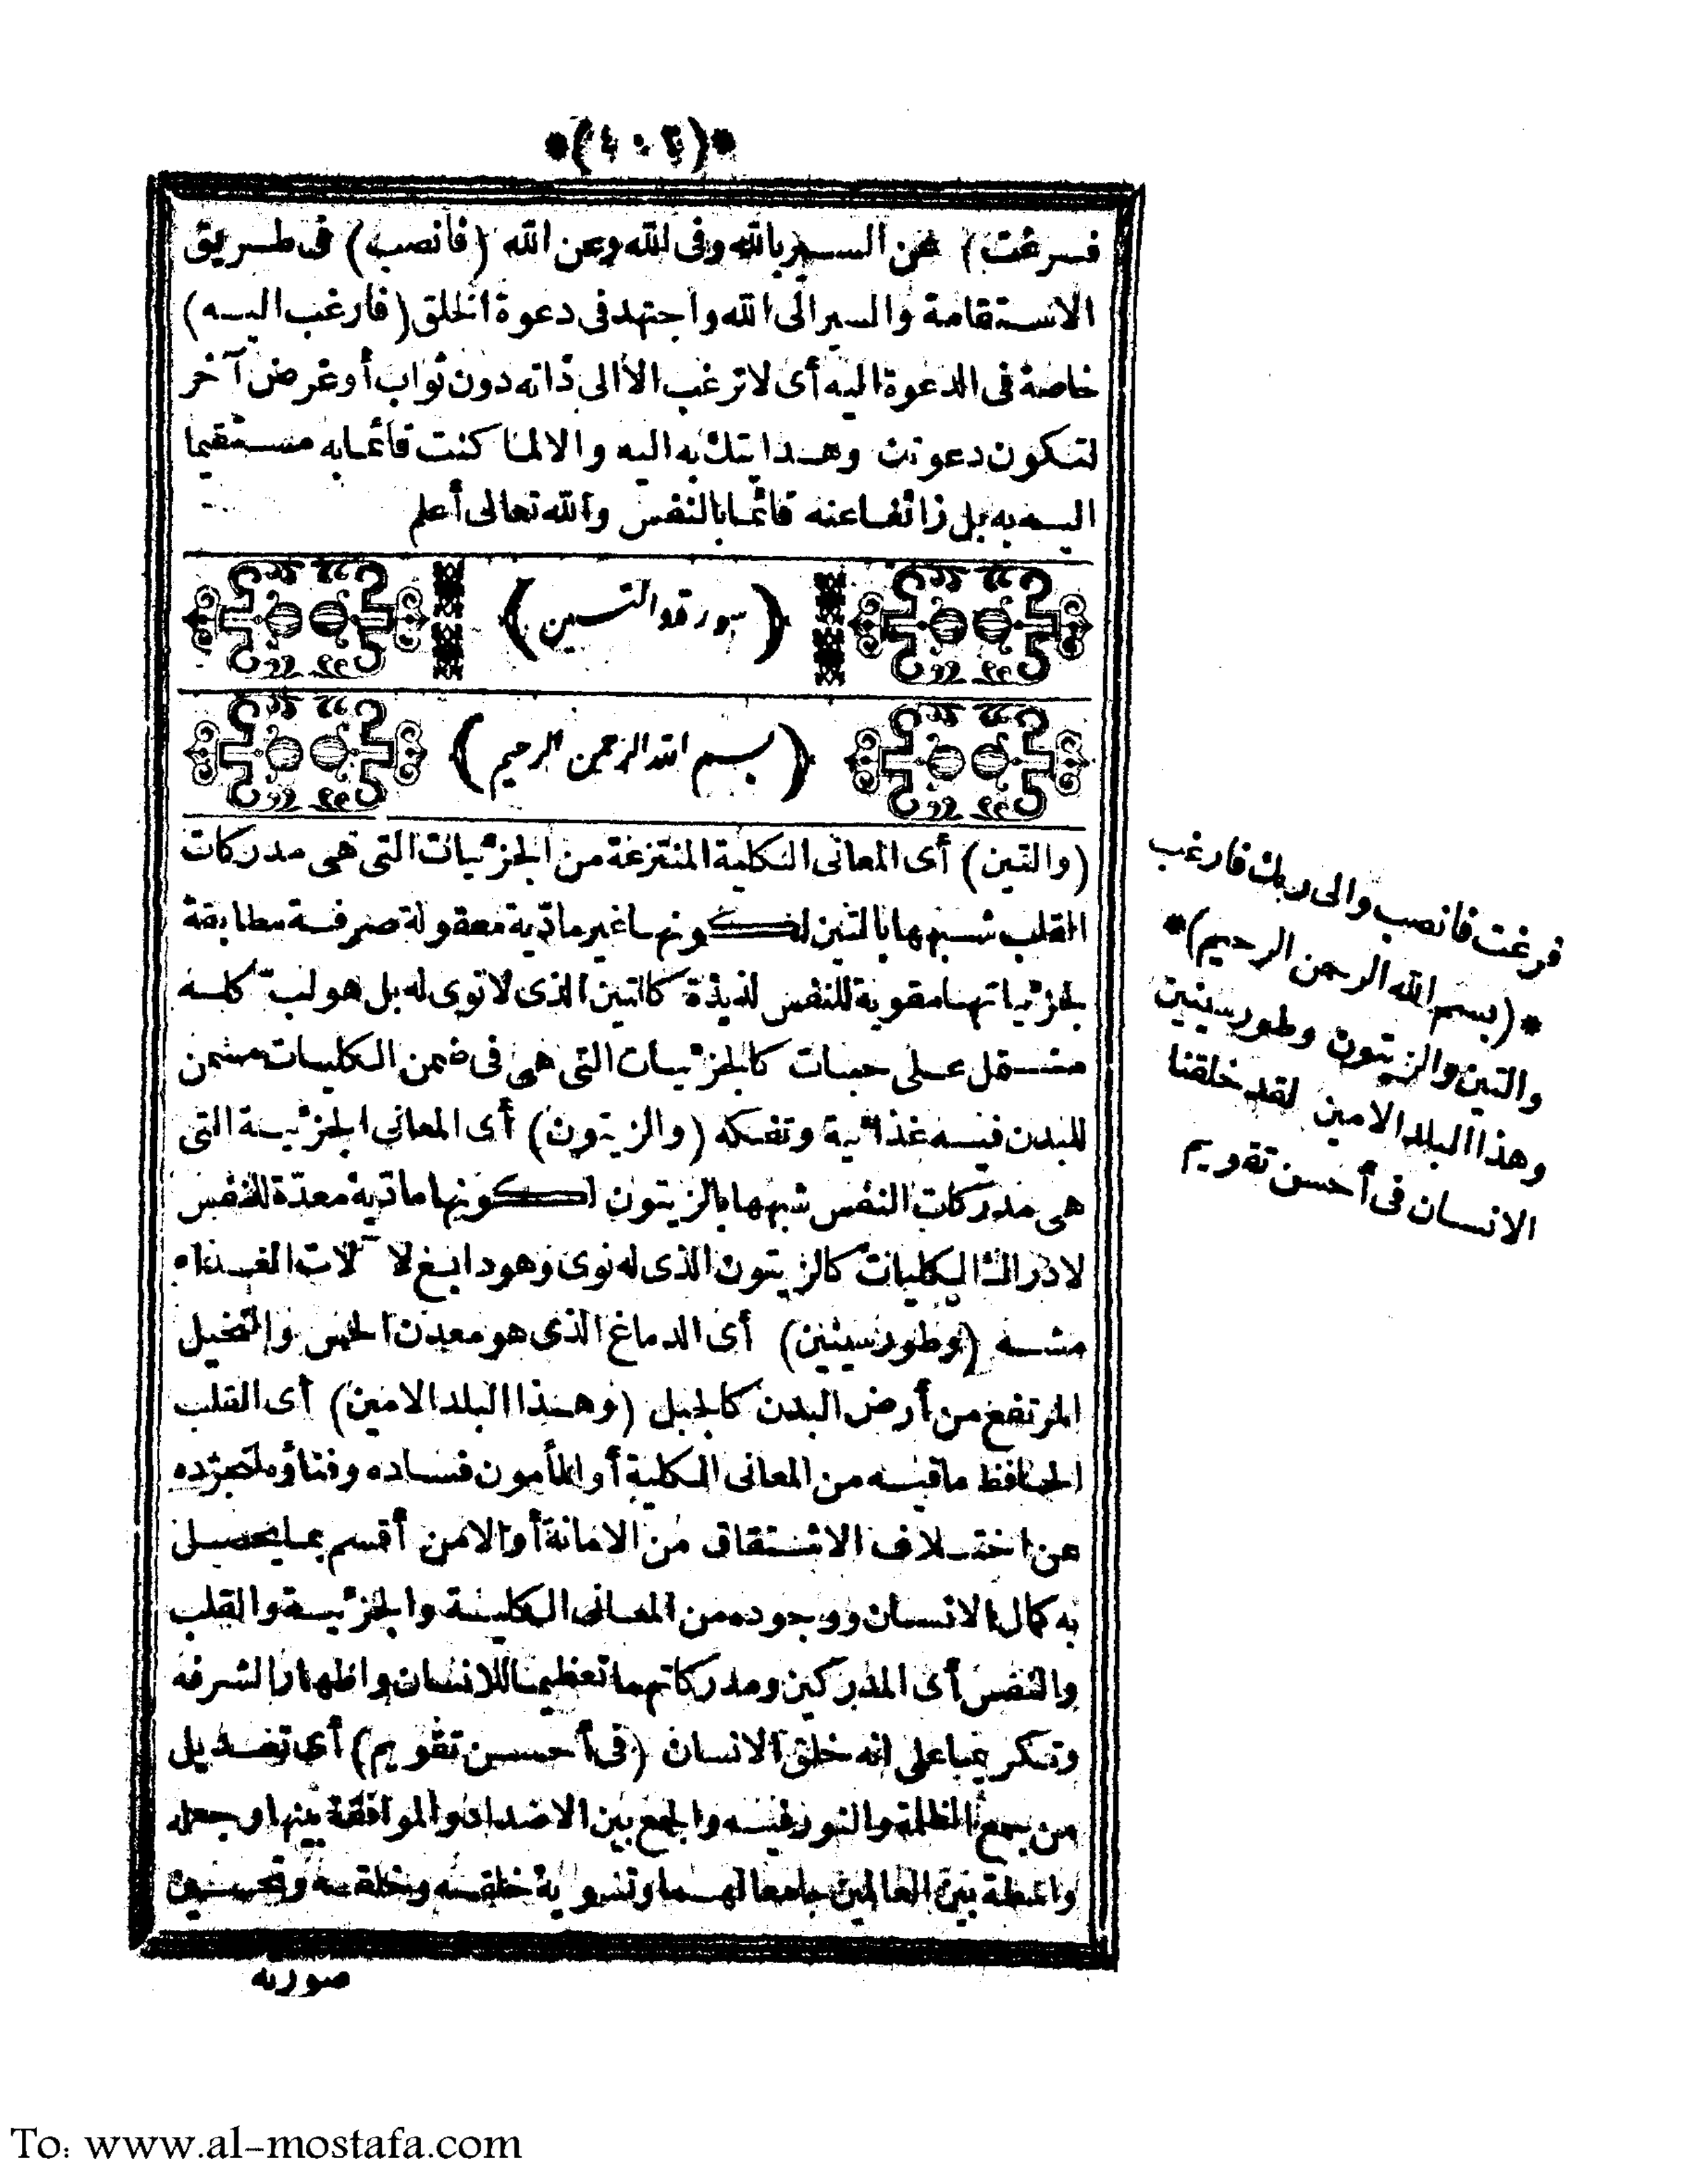 *(٤٠٢)*
فرغت) عن السير بالله وفى الله وعن الله (فانصب) فى طريق
الاستقامة والسير الى الله واجتهد فى دعوة الخلق (فارغب اليه)
خاصة فى الدعوة اليه أى لا ترغب الا الى ذاته دون ثواب أو غرض آخر
لتكون دعوتك وهدايتك به اليه والا لما كنت قائما به مستقيما
اليه به بل زائغا عنه قائما بالنفس والله تعالى أعلم
(سورة والتين)
(بسم الله الرحمن الرحيم)
(والتين) أى المعانى الكلية المنتزعة من الجزئيات التى هى مدركات
القلب شبهها بالتين لكونها غير مادّية معقولة صرفة مطابقة
لجزئياتها مقوية للنفس لذيذة كالتين الذى لا نوى له بل هو لبّ كله
مشتمل على حبات كالجزئيات التى هى فى ضمن الكليات مسمن
للبدن فيه غذائية وتفكه (والزيتون) أى المعانى الجزئية التى
هى مدركات النفس شبهها بالزيتون لكونها مادّية معدّة للنفس
لادراك الكليات كالزيتون الذى له نوى وهو دابغ لآلات الغذاء
مشه (وطور سينين) أى الدماغ الذى هو معدن الحس والتخيل
المرتفع من أرض البدن كالجبل (وهذا البلد الامين) أى القلب
الحافظ ما فيه من المعانى الكلية أو المأمون فساده وفناؤه لتجرّده
عن اختلاف الاشتقاق من الامانة أو الامن أقسم بما يحصل
به كمال الانسان ووجوده من المعانى الكلية والجزئية والقلب
والنفس أى المدركين ومدركاتهما تعظيما للانسان واظهارا لشرفه
وتكريما على انه خلق الانسان (فى أحسن تقويم) أى تعديل
من جمع الظلمة والنور فيه والجمع بين الاضداد والموافقة بينها وجعله
واسطة بين العالمين جامعا لهما وتسوية خلقه وخلقه وتحسين
صورته
فرغت فانصب والى ربك فارغب
*(بسم الله الرحمن الرحيم)*
والتين والزيتون وطور سينين
وهذا البلد الامين لقد خلقنا
الانسان فى أحسن تقويم
To: www.al-mostafa.com